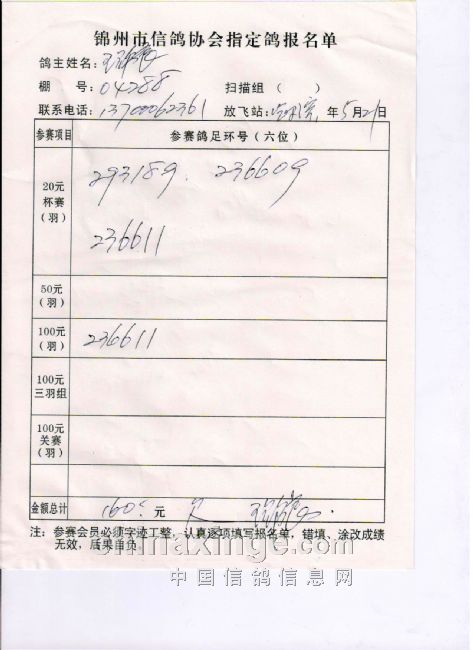 锦州市信鸽协会指定鸽报名单
鸽主姓名：
棚 号：04288 扫描组（ ）
联系电话：13700062361 放飞站： 年5月21日
参赛项目 参赛鸽足环号（六位）
20元 杯赛 （羽） 293189. 236609
236611
50元 （羽）
100元 （羽） 236611
100元 三羽组
100元 关赛 （羽）
金额总计 160 元
注：参赛会员必须字迹工整，认真逐项填写报名单，错填、涂改成绩
无效，后果自负。
chinaxinge.com
中国信鸽信息网